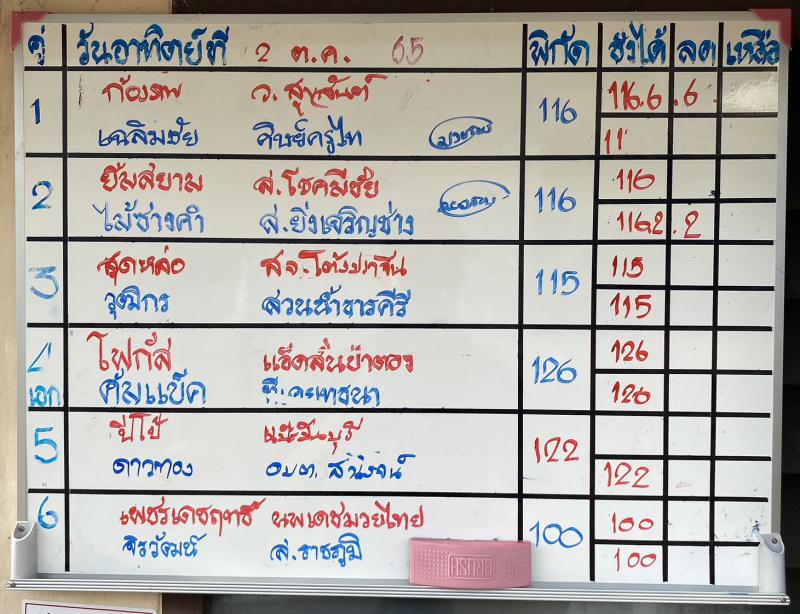 คู่ วันอาทิตย์ที่ 2 ต.ค. 65 พิกัด ชั่งได้ ลด เหลือ
1 ก้องรพ ว. สุรสันต์ 116 116.6 .6
เฉลิมชัย ศิษย์ครูไท 11
2 ยิ้มสยาม ส.โชคมีชัย 116 116
ไม้ซางคำ ส.ยิ่งเจริญช่าง 116.2 .2
3 สุดหล่อ สจ.โต้งปราจีน 115 115
วุฒิกร สวนน้ำธารคีรี 115
4 โฟกัส แอ๊ดสั้นป่าตอง 126 126
เอก คัมแบ็ค 126
5 ปีโป้ แปะมีนบุรี 122
ดาวทอง อบต. 122
6 เพชรเดชฤทธิ์ นพเดชมวยไทย 100 100
จิรวัฒน์ ส.ราชภูมิ 100
BRUSH